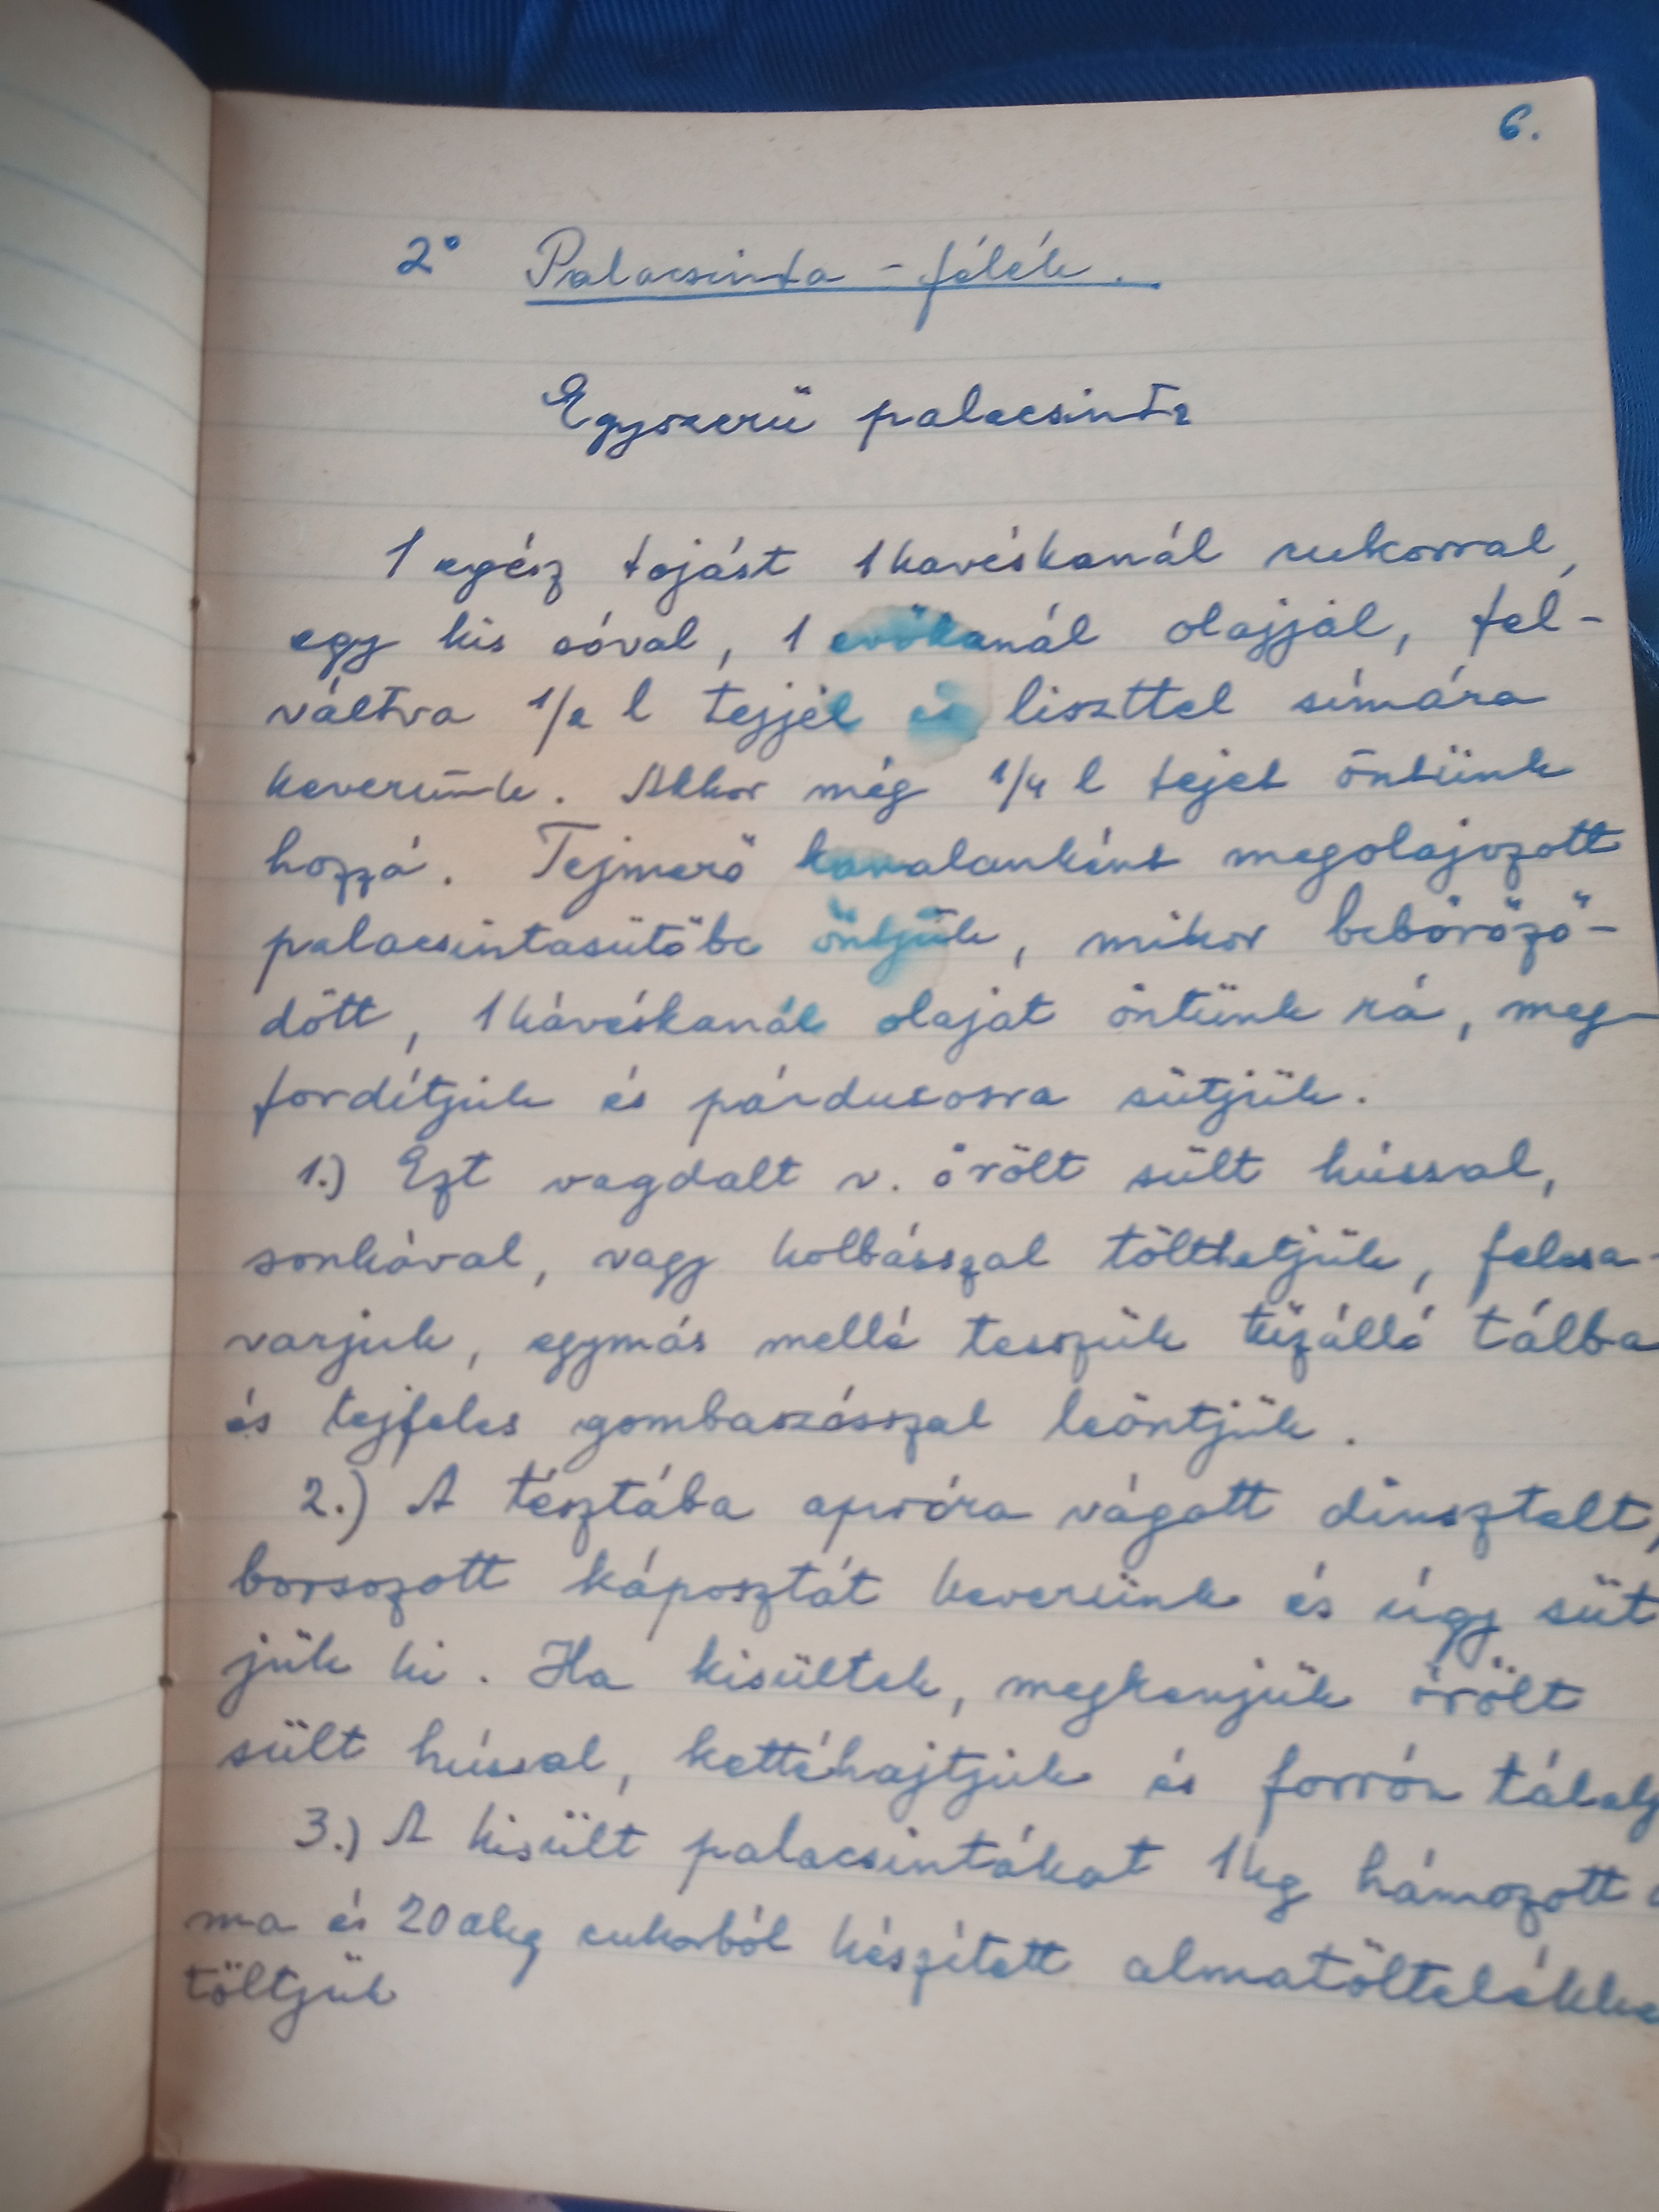 6.
2° Palacsinta-félék.
Egyszerü palacsinta
1 egész tojást 1 kavéskanál cukorral,
egy kis sóval, 1 evőkanál olajjal, fel-
váltva 1/2 l tejjel és liszttel símára
keverünk. Akkor még 1/4 l tejet öntünk
hozzá. Tejmerő kanalanként megolajozott
palacsintasütőbe öntjük, mikor bebőröző-
dött, 1 kávéskanál olajat öntünk rá, meg-
fordítjuk és párducosra sütjük.
1.) Ezt vagdalt v. őrölt sült hússal,
sonkával, vagy kolbásszal tölthetjük, felcsa-
varjuk, egymás mellé tesszük tűzálló tálba
és tejfeles gombaszásszal leöntjük.
2.) A tésztába apróra vágott dinsztelt,
borsozott káposztát keverünk és úgy süt
jük ki. Ha kisültek, megkenjük őrölt
sült hússal, kettéhajtjuk és forrón tálalj
3.) A kisült palacsintákat 1 kg hámozott a
ma és 20 dkg cukorból készített almatöltelékke
töltjük